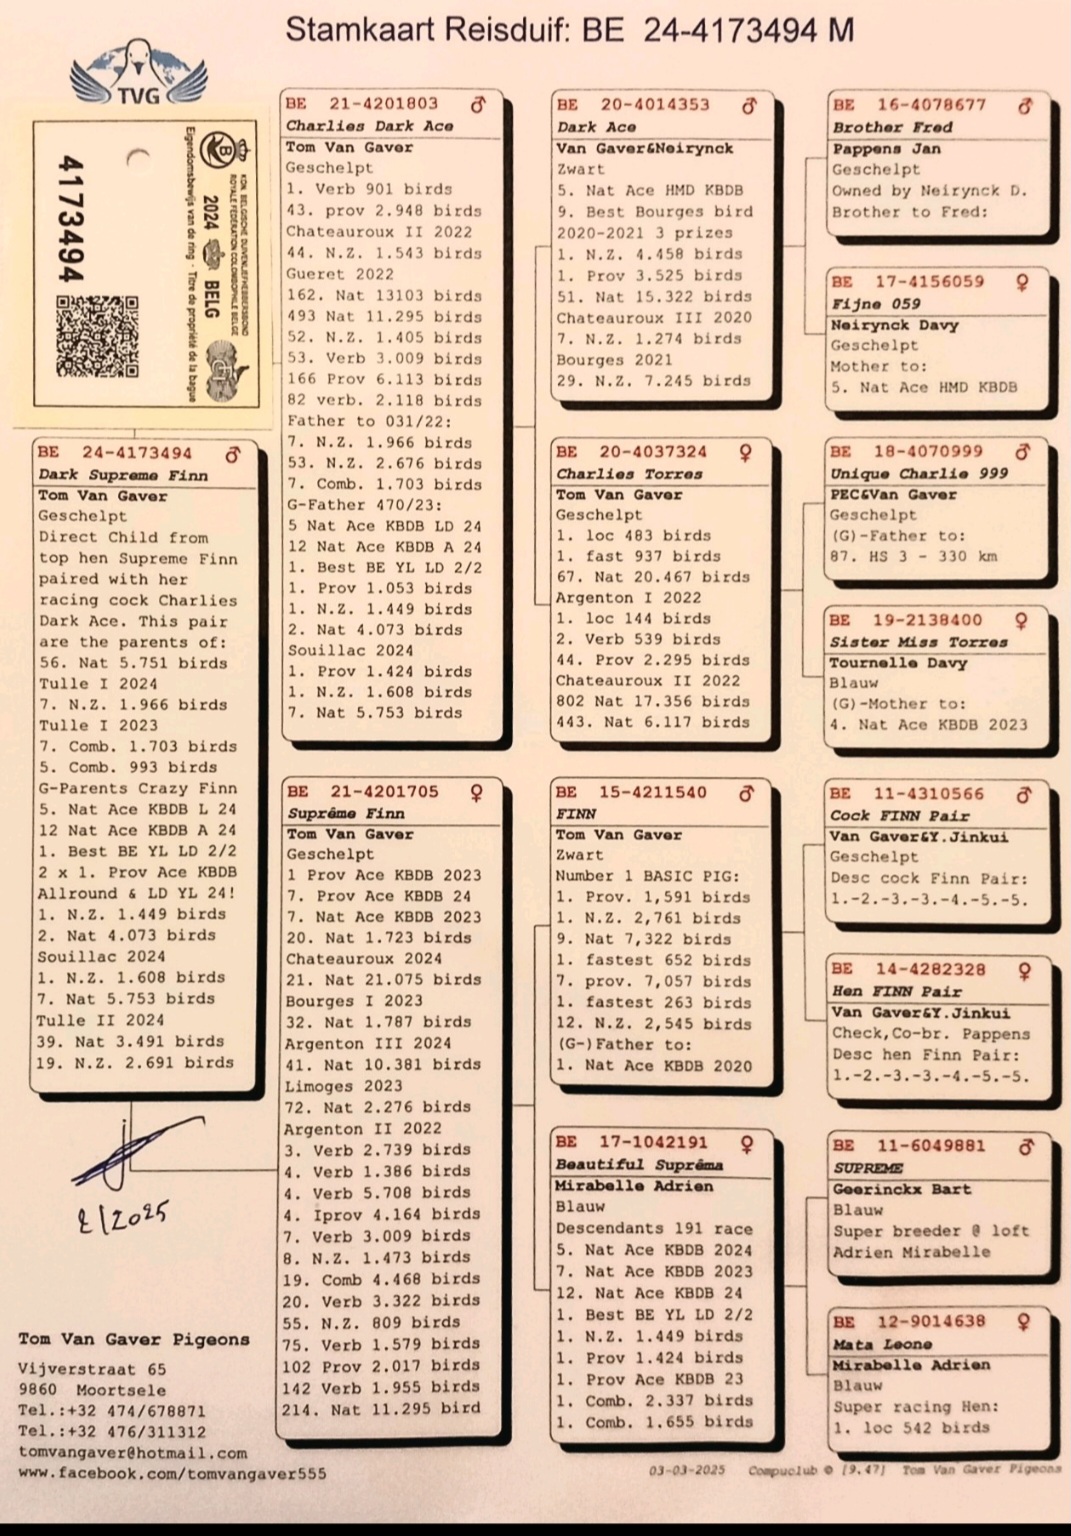 Stamkaart Reisduif: BE 24-4173494 M
TVG
4173494
Eigendomsbewijs van de ring - Titre de propriété de la bague
2024 BELG
KON. BELGISCHE DUIVENLIEFHEBBERSBOND
ROYALE FÉDÉRATION COLOMBOPHILE BELGE
B
BE 24-4173494 ♂
Dark Supreme Finn
Tom Van Gaver
Geschelpt
Direct Child from
top hen Supreme Finn
paired with her
racing cock Charlies
Dark Ace. This pair
are the parents of:
56. Nat 5.751 birds
Tulle I 2024
7. N.Z. 1.966 birds
Tulle I 2023
7. Comb. 1.703 birds
5. Comb. 993 birds
G-Parents Crazy Finn
5. Nat Ace KBDB L 24
12 Nat Ace KBDB A 24
1. Best BE YL LD 2/2
2 x 1. Prov Ace KBDB
Allround & LD YL 24!
1. N.Z. 1.449 birds
2. Nat 4.073 birds
Souillac 2024
1. N.Z. 1.608 birds
7. Nat 5.753 birds
Tulle II 2024
39. Nat 3.491 birds
19. N.Z. 2.691 birds
2/2025
Tom Van Gaver Pigeons
Vijverstraat 65
9860 Moortsele
Tel.:+32 474/678871
Tel.:+32 476/311312
tomvangaver@hotmail.com
www.facebook.com/tomvangaver555
BE 21-4201803 ♂
Charlies Dark Ace
Tom Van Gaver
Geschelpt
1. Verb 901 birds
43. prov 2.948 birds
Chateauroux II 2022
44. N.Z. 1.543 birds
Gueret 2022
162. Nat 13103 birds
493 Nat 11.295 birds
52. N.Z. 1.405 birds
53. Verb 3.009 birds
166 Prov 6.113 birds
82 verb. 2.118 birds
Father to 031/22:
7. N.Z. 1.966 birds
53. N.Z. 2.676 birds
7. Comb. 1.703 birds
G-Father 470/23:
5 Nat Ace KBDB LD 24
12 Nat Ace KBDB A 24
1. Best BE YL LD 2/2
1. Prov 1.053 birds
1. N.Z. 1.449 birds
2. Nat 4.073 birds
Souillac 2024
1. Prov 1.424 birds
1. N.Z. 1.608 birds
7. Nat 5.753 birds
BE 21-4201705 ♀
Suprême Finn
Tom Van Gaver
Geschelpt
1 Prov Ace KBDB 2023
7. Prov Ace KBDB 24
7. Nat Ace KBDB 2023
20. Nat 1.723 birds
Chateauroux 2024
21. Nat 21.075 birds
Bourges I 2023
32. Nat 1.787 birds
Argenton III 2024
41. Nat 10.381 birds
Limoges 2023
72. Nat 2.276 birds
Argenton II 2022
3. Verb 2.739 birds
4. Verb 1.386 birds
4. Verb 5.708 birds
4. Iprov 4.164 birds
7. Verb 3.009 birds
8. N.Z. 1.473 birds
19. Comb 4.468 birds
20. Verb 3.322 birds
55. N.Z. 809 birds
75. Verb 1.579 birds
102 Prov 2.017 birds
142 Verb 1.955 birds
214. Nat 11.295 bird
BE 20-4014353 ♂
Dark Ace
Van Gaver&Neirynck
Zwart
5. Nat Ace HMD KBDB
9. Best Bourges bird
2020-2021 3 prizes
1. N.Z. 4.458 birds
1. Prov 3.525 birds
51. Nat 15.322 birds
Chateauroux III 2020
7. N.Z. 1.274 birds
Bourges 2021
29. N.Z. 7.245 birds
BE 20-4037324 ♀
Charlies Torres
Tom Van Gaver
Geschelpt
1. loc 483 birds
1. fast 937 birds
67. Nat 20.467 birds
Argenton I 2022
1. loc 144 birds
2. Verb 539 birds
44. Prov 2.295 birds
Chateauroux II 2022
802 Nat 17.356 birds
443. Nat 6.117 birds
BE 15-4211540 ♂
FINN
Tom Van Gaver
Zwart
Number 1 BASIC PIG:
1. Prov. 1,591 birds
1. N.Z. 2,761 birds
9. Nat 7,322 birds
1. fastest 652 birds
7. prov. 7,057 birds
1. fastest 263 birds
12. N.Z. 2,545 birds
(G-)Father to:
1. Nat Ace KBDB 2020
BE 17-1042191 ♀
Beautiful Suprêma
Mirabelle Adrien
Blauw
Descendants 191 race
5. Nat Ace KBDB 2024
7. Nat Ace KBDB 2023
12. Nat Ace KBDB 24
1. Best BE YL LD 2/2
1. N.Z. 1.449 birds
1. Prov 1.424 birds
1. Prov Ace KBDB 23
1. Comb. 2.337 birds
1. Comb. 1.655 birds
BE 16-4078677 ♂
Brother Fred
Pappens Jan
Geschelpt
Owned by Neirynck D.
Brother to Fred:
BE 17-4156059 ♀
Fijne 059
Neirynck Davy
Geschelpt
Mother to:
5. Nat Ace HMD KBDB
BE 18-4070999 ♂
Unique Charlie 999
PEC&Van Gaver
Geschelpt
(G)-Father to:
87. HS 3 - 330 km
BE 19-2138400 ♀
Sister Miss Torres
Tournelle Davy
Blauw
(G)-Mother to:
4. Nat Ace KBDB 2023
BE 11-4310566 ♂
Cock FINN Pair
Van Gaver&Y.Jinkui
Geschelpt
Desc cock Finn Pair:
1.-2.-3.-3.-4.-5.-5.
BE 14-4282328 ♀
Hen FINN Pair
Van Gaver&Y.Jinkui
Check,Co-br. Pappens
Desc hen Finn Pair:
1.-2.-3.-3.-4.-5.-5.
BE 11-6049881 ♂
SUPREME
Geerinckx Bart
Blauw
Super breeder @ loft
Adrien Mirabelle
BE 12-9014638 ♀
Mata Leone
Mirabelle Adrien
Blauw
Super racing Hen:
1. loc 542 birds
03-03-2025 Compuclub © [9.47] Tom Van Gaver Pigeons